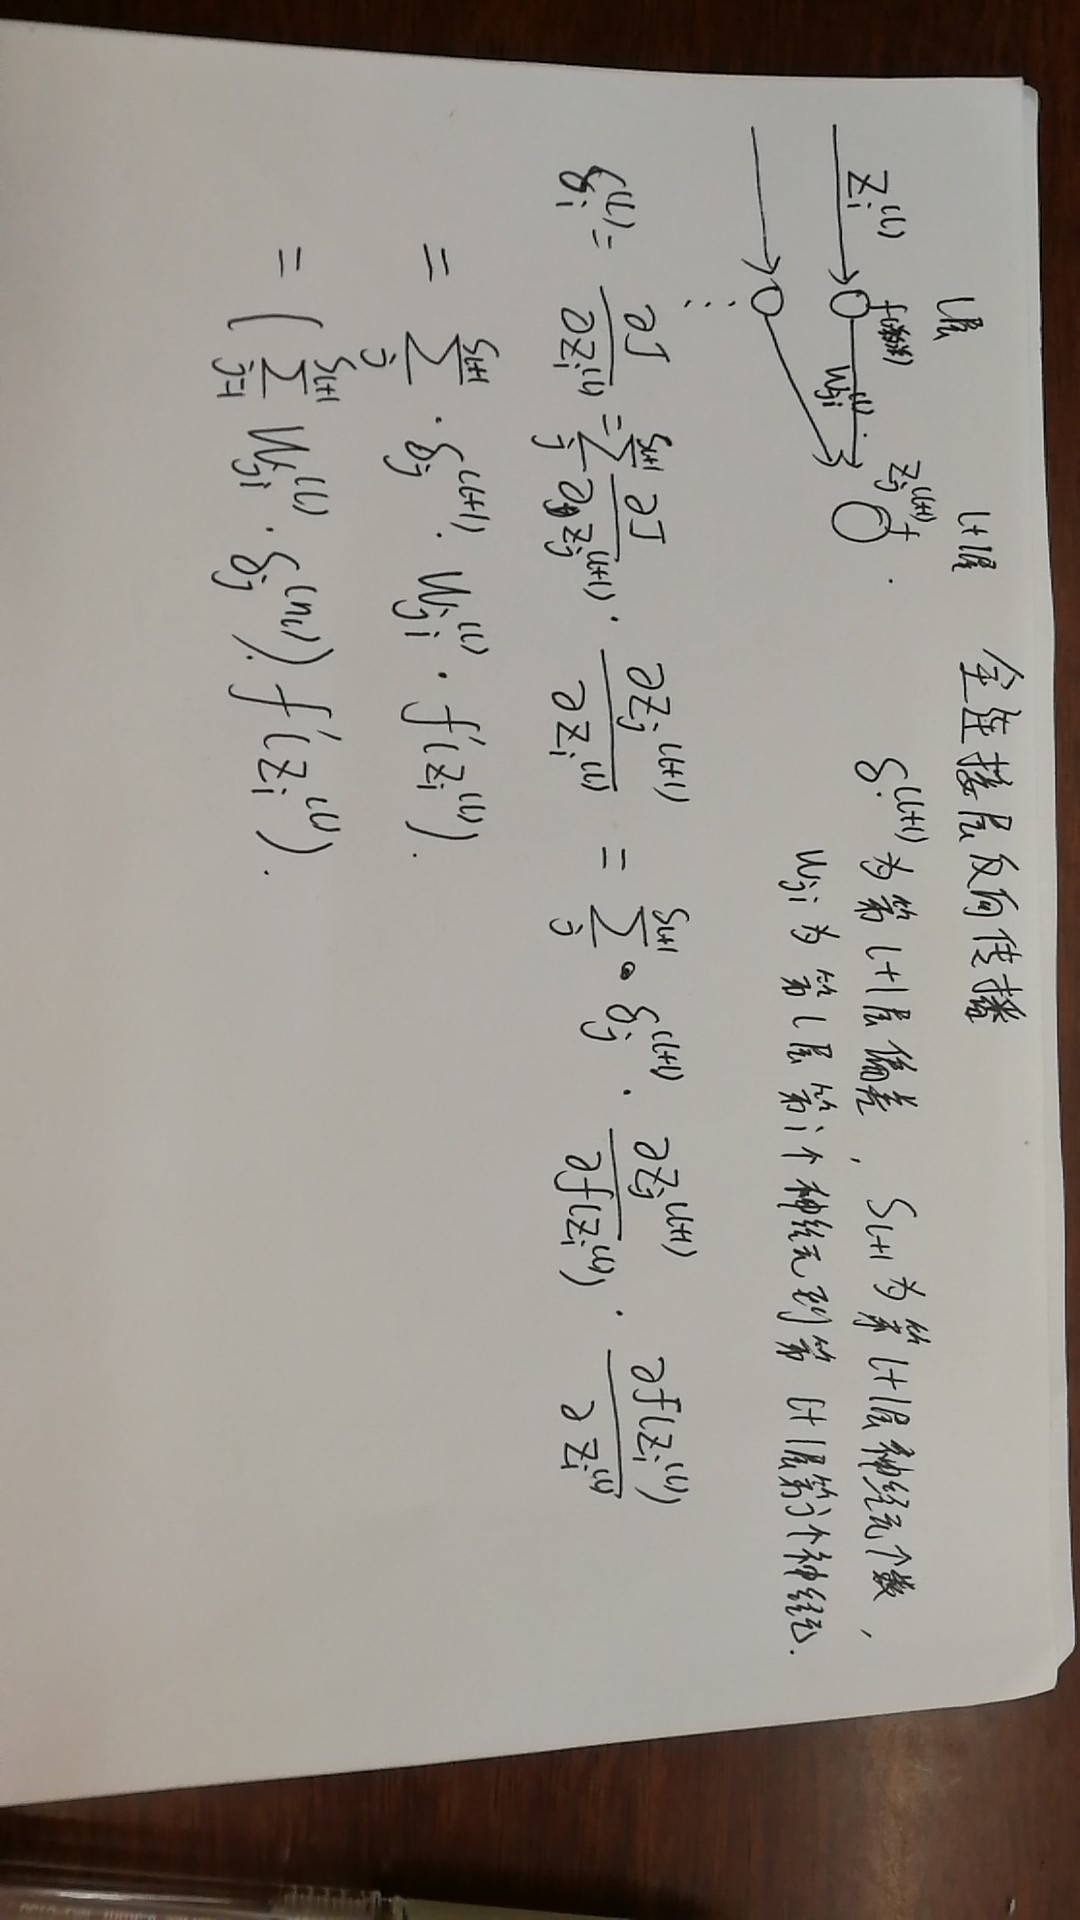 全连接层反向传播
l层 l+1层
Z_i^{(l)} f W_{ji}^{(l)} Z_j^{(l+1)} f
δ_i^{(l+1)}为第l+1层偏差, S_{l+1}为第l+1层神经元个数,
W_{ji}为第l层第i个神经元到第l+1层第j个神经元.
δ_i^{(l)} = ∂J/∂Z_i^{(l)} = Σ_j^{S_{l+1}} ∂J/∂Z_j^{(l+1)} · ∂Z_j^{(l+1)}/∂Z_i^{(l)} = Σ_j^{S_{l+1}} · δ_j^{(l+1)} · ∂Z_j^{(l+1)}/∂f(Z_i^{(l)}) · ∂f(Z_i^{(l)})/∂Z_i^{(l)}
= Σ_j^{S_{l+1}} · δ_j^{(l+1)} · W_{ji}^{(l)} · f'(Z_i^{(l)}).
= (Σ_{j=1}^{S_{l+1}} W_{ji}^{(l)} · δ_j^{(n_l)}) · f'(Z_i^{(l)}).